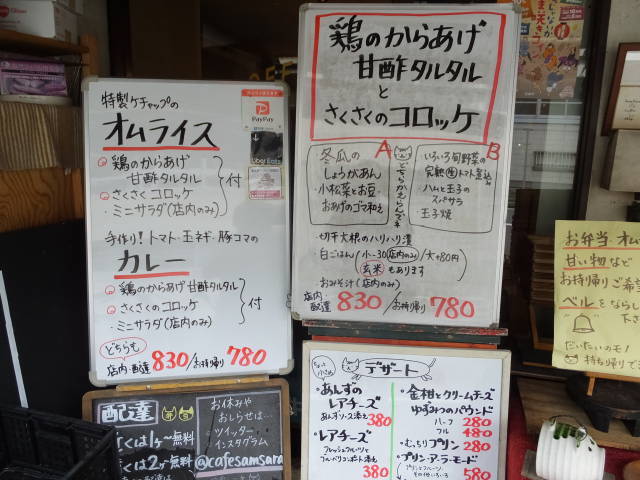 特製ケチャップの
オムライス
鶏のからあげ
甘酢タルタル
さくさくコロッケ
・ミニサラダ(店内のみ)
付
手作り!トマト・玉ネギ・豚コマの
カレー
鶏のからあげ甘酢タルタル
さくさくのコロッケ
・ミニサラダ(店内のみ)
付
どちらも
店内・配達 830/お持帰り 780
PayPay
Uber Eats
鶏のからあげ
甘酢タルタル
と
さくさくのコロッケ
A
冬瓜の
しょうがあん
・小松菜とお豆・
おあげのゴマ和え
どちらかえらんで
B
いろいろ旬野菜の
・ハムと玉子の
スパサラ
・玉子焼
切干大根のハリハリ漬
白ごはん/小-30(店内のみ)/大+80円
玄米もあります
おみそ汁(店内のみ)
店内・配達 830/お持帰り 780
デザート
・あんずの
レアチーズ
あんずソース添え
380
・レアチーズ
フレッシュフルーツと
ブルーベリーコンポート添え
380
・金柑とクリームチーズ
ゆずみつのパウンド
ハーフ 280
フル 480
・むっちりプリン 280
・プリン・ア・ラ・モード
580
配達
近くは1ヶ〜無料
遠くは2ヶ〜無料
お休みや
おしらせは…
ツイッター・
インスタグラム
@cafesamsara
お弁当・オム
甘い物など
お持帰りご希
ベルをならし
下さ
だいたいのモノ
持ち帰りで